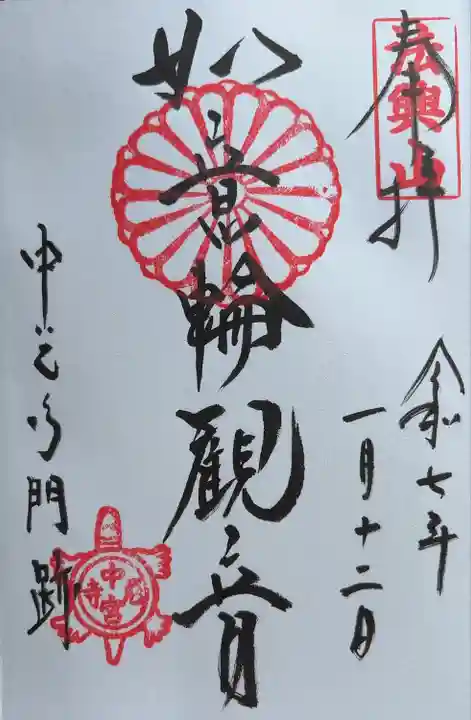 奉拝
法興山
令和七年
一月十二日
如意輪觀音
中宮寺門跡
中宮尼寺